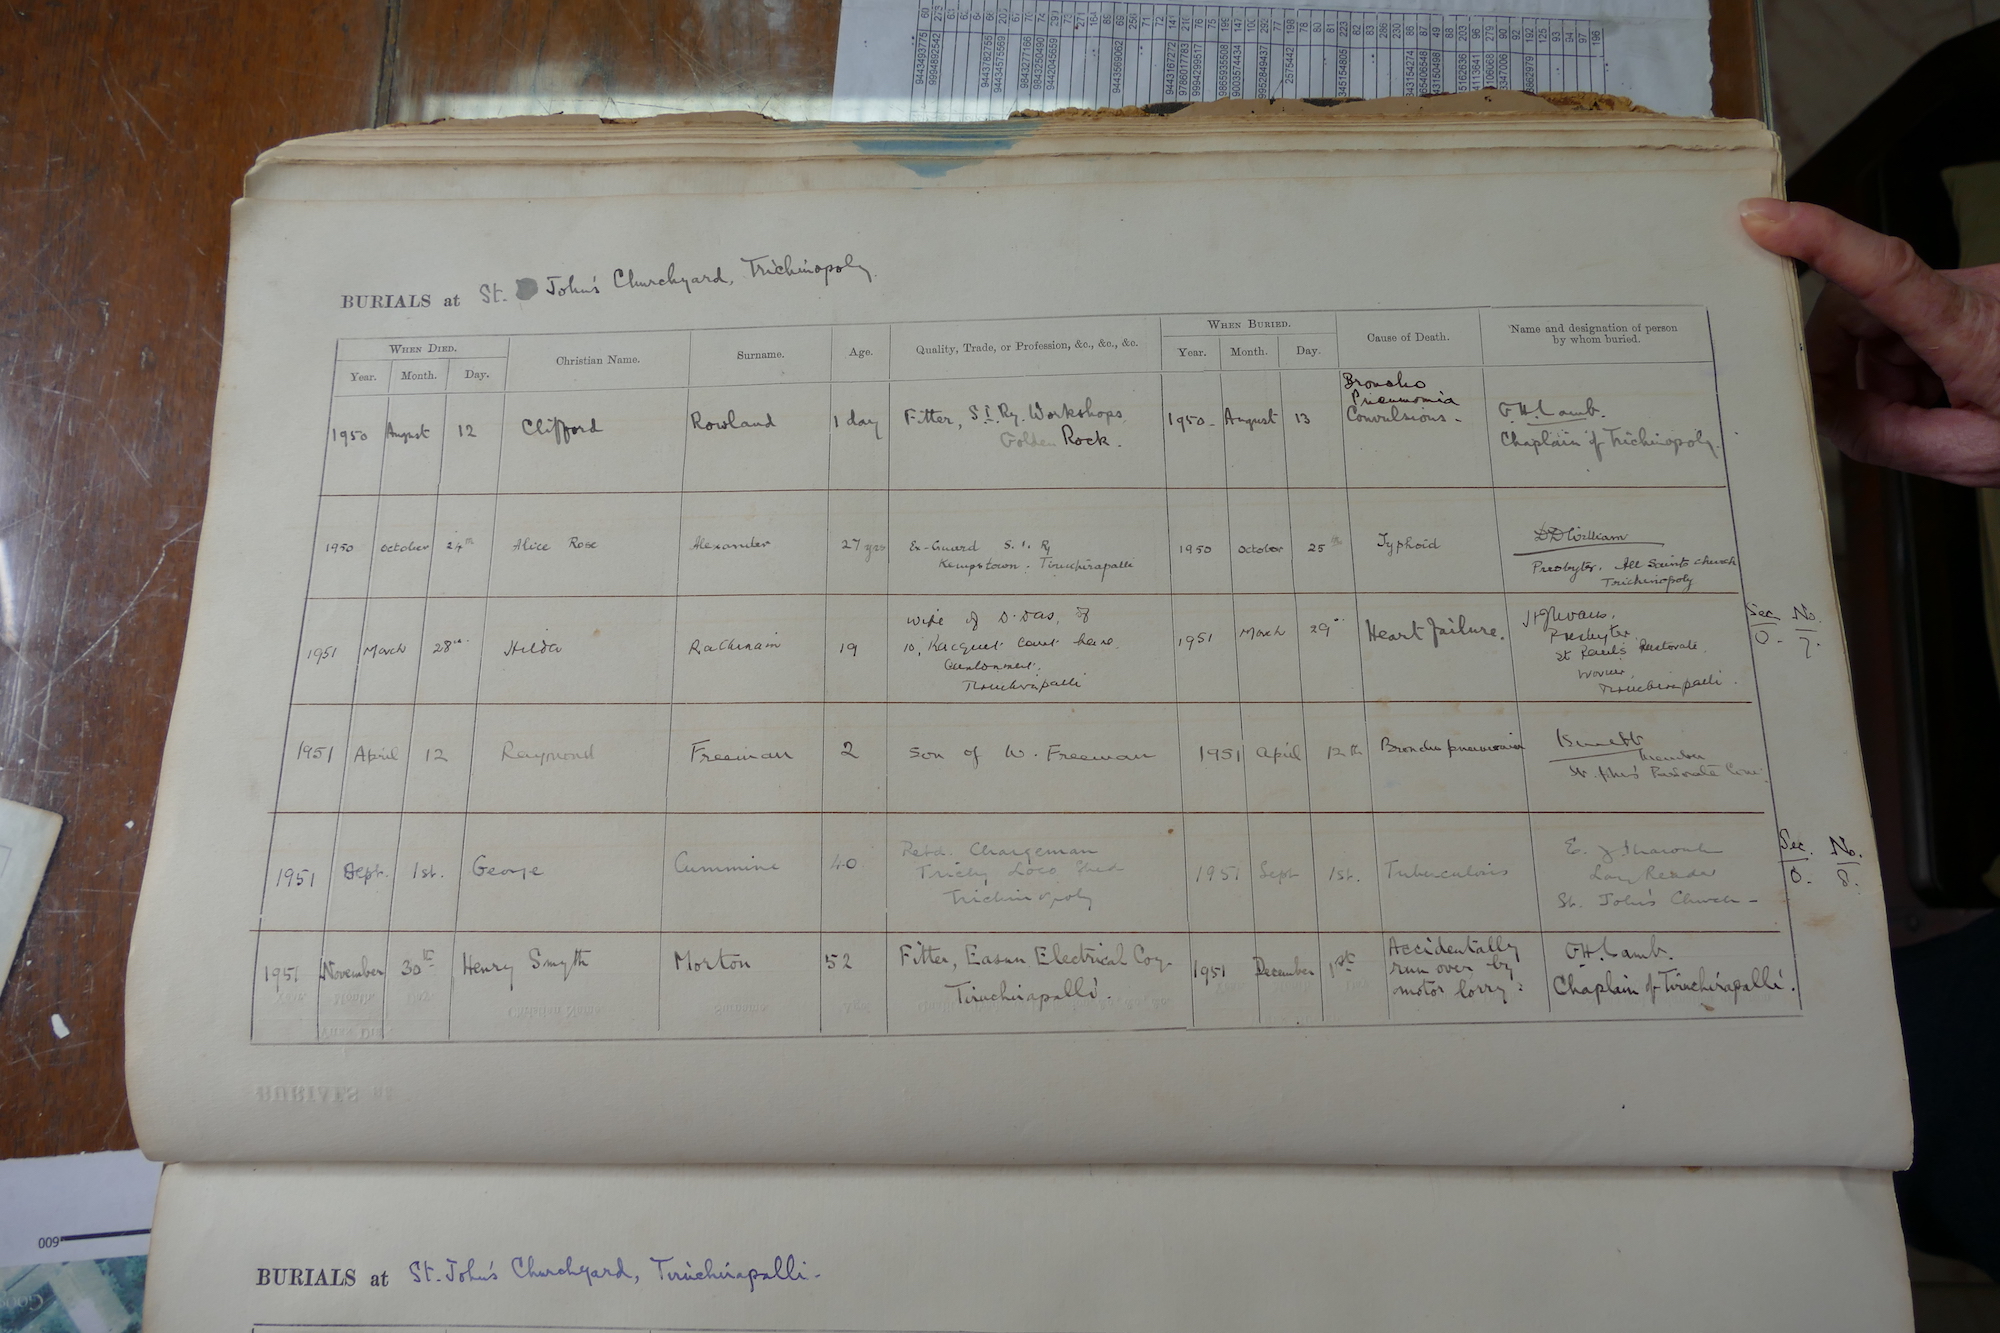 BURIALS at St. John's Churchyard, Trichinopoly.
WHEN DIED. Christian Name. Surname. Age. Quality, Trade, or Profession, &c., &c., &c. WHEN BURIED. Cause of Death. Name and designation of person by whom buried.
Year. Month. Day. Year. Month. Day.
1950 August 12 Clifford Rowland 1 day Fitter, S.I. Ry. Workshops, Golden Rock. 1950 - August 13 Broncho Pneumonia Convulsions - G.H. Lamb. Chaplain of Trichinopoly.
1950 October 24th Alice Rose Alexander 27 yrs Ex-Guard S. I. Ry Kempstown. Tiruchirapalli 1950 October 25th Typhoid DD William Presbyter, All Saints church Trichinopoly
1951 March 28th Hilda Rachinam 19 wife of D. Das, of 10, Racquet Court Lane, Cantonment, Tiruchirapalli 1951 March 29th Heart failure. Presbyter, St Paul's Pastorate, Tiruchirapalli.
Sec. No.
0. 7.
1951 April 12 Raymond Freeman 2 son of W. Freeman 1951 April 12th Broncho pneumonia member St. John's Pastorate Com.
1951 Sept. 1st. George Cummine 40 Retd. Chargeman Trichy Loco Shed Trichinopoly 1951 Sept 1st. Tuberculosis E. Lay Reader St. John's Church -
Sec. No.
0. 8.
1951 November 30th Henry Smyth Morton 52 Fitter, Easun Electrical Coy. Tiruchirapalli. 1951 December 1st Accidentally run over by motor lorry. G.H. Lamb. Chaplain of Tiruchirapalli.
BURIALS at St. John's Churchyard, Tiruchirapalli -
009